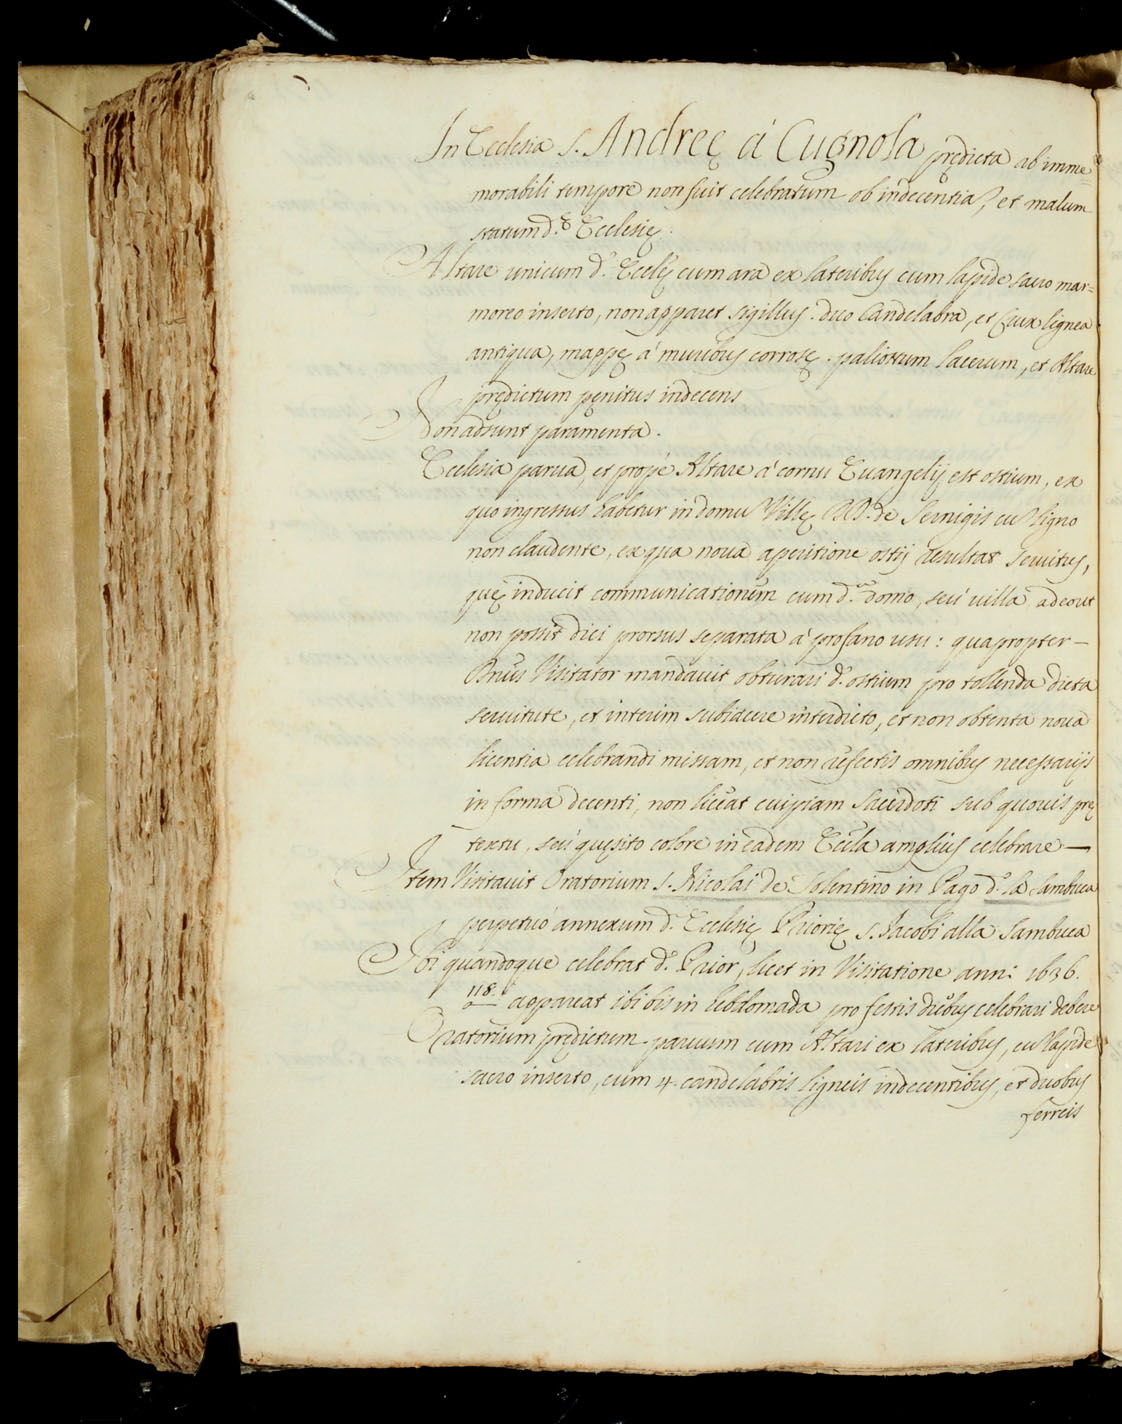 In Ecclesia S. Andreę à Cugnola prędicta ab imme=
morabili tempore non fuit celebratum ob indecentiã, et malum
statum d.ę Ecclesię.
Altare unicum d.ę Eccl̃ę cum ara ex lateribus cum lapide sacro mar=
moreo inserto, non apparet sigillus: duo Candelabra, et Crux lignea
antiqua, mappę à muribus corrosę. paliotum lacerum, et Altare
prędictum penitus indecens
Non adsunt paramenta.
Ecclesia parua, et propè Altare à cornu Euangelij est ostium, ex
quo ingressus habetur in domũ Villę DD. de Sernigis cũ ligno
non claudente, ex qua noua aperitione ostij resultat seruitus,
quę inducit communicationem cum d.ca domo, seù uilla, adeout
non possit dici prorsus separata à profano usu: quapropter —
Dn̄us Visitator mandauit obturari d.ũ ostium pro tollenda dicta
seruitute, et interim subiacere interdicto, et non obtenta noua
licentia celebrandi missam, et non refectis omnibus necessarijs
in forma decenti, non liceat cuipiam Sacerdoti sub quouis prę
textu, seù quęsito colore in eadem Eccl̃a amplius celebrare —
Item Visitauit Oratorium S. Nicolai de Tolentino in Pago d.º la Sambuca
perpetuò annexum d.ę Ecclesię Priorię S. Jacobi alla Sambuca
Ibi quandoque celebrat d.s Prior, licet in Visitatione anni 1636.
118. appareat ibi bis in hebdomada pro festis diebus celebrari debere
Oratorium prędictum paruum cum Altari ex lateribus, cũ lapide
sacro inserto, cum 4. candelabris ligneis indecentibus, et duobus
ferreis